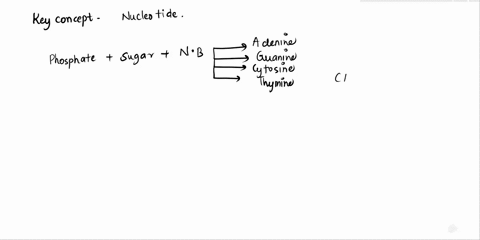 Key concept - Nucleotide.
Phosphate + Sugar + N.B
Adenine
Guanine
Cytosine
Thymine
C